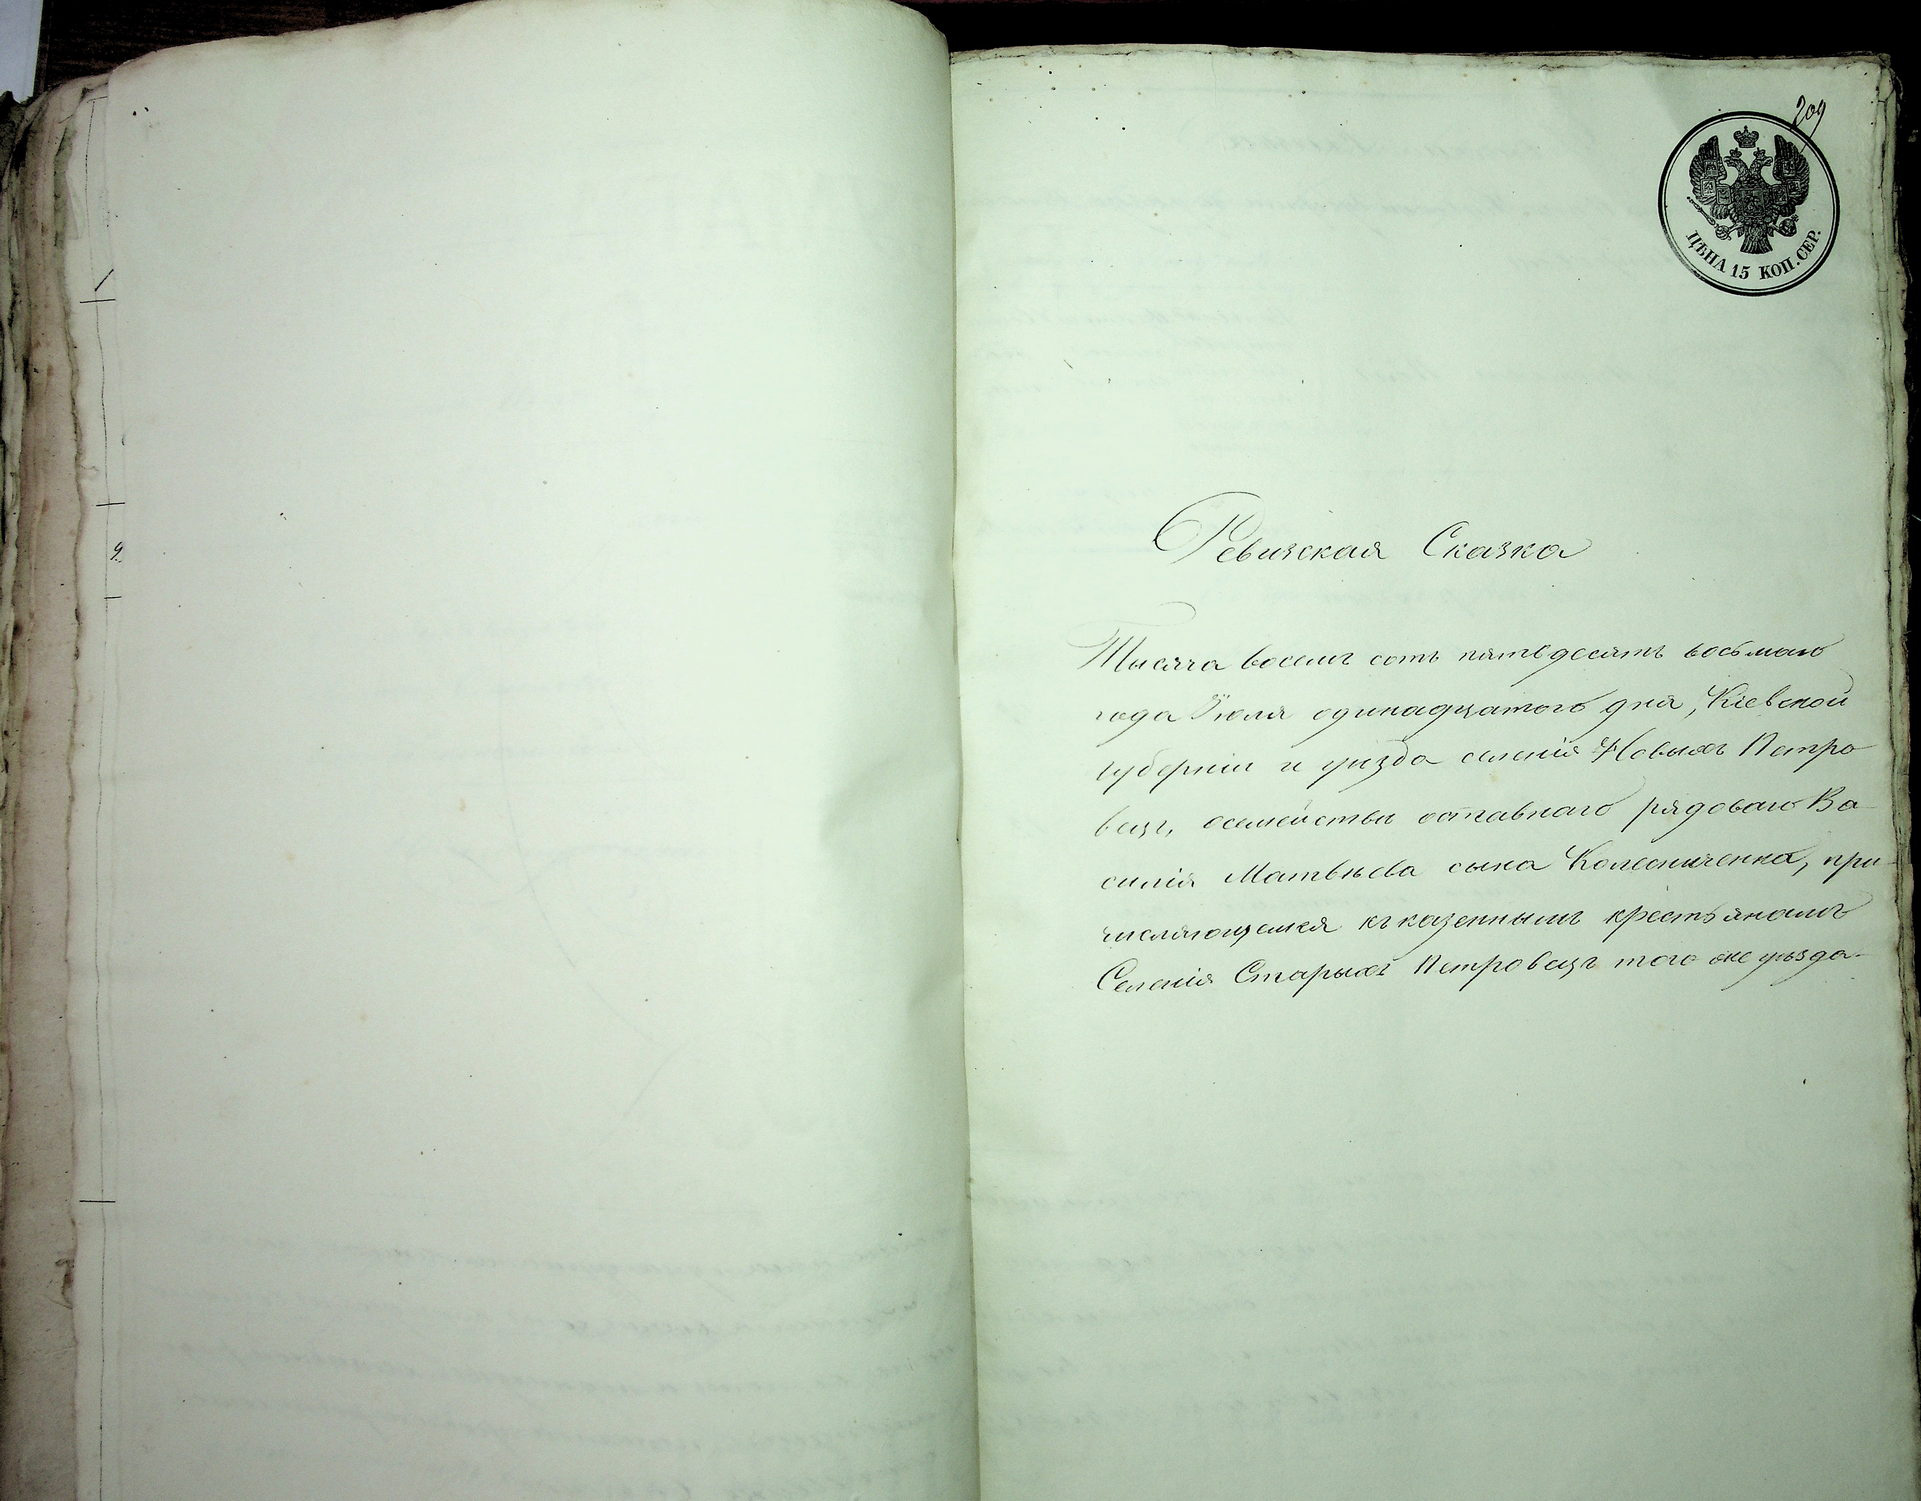 209
ЦѢНА 15 КОП. СЕР.
Ревизская Сказка
Тысяча восемъ сотъ пятьдесятъ восьмаго
года Іюля одинадцатого дня, Кіевской
губерніи и уѣзда селенія Новыхъ Петро
вецъ, осемействѣ отставнаго рядоваго Ва-
силія Матвѣева сына Колесниченка, при-
числяющемся къ казеннымъ крестьянамъ
Селенія Старыхъ Петровецъ того же уѣзда.